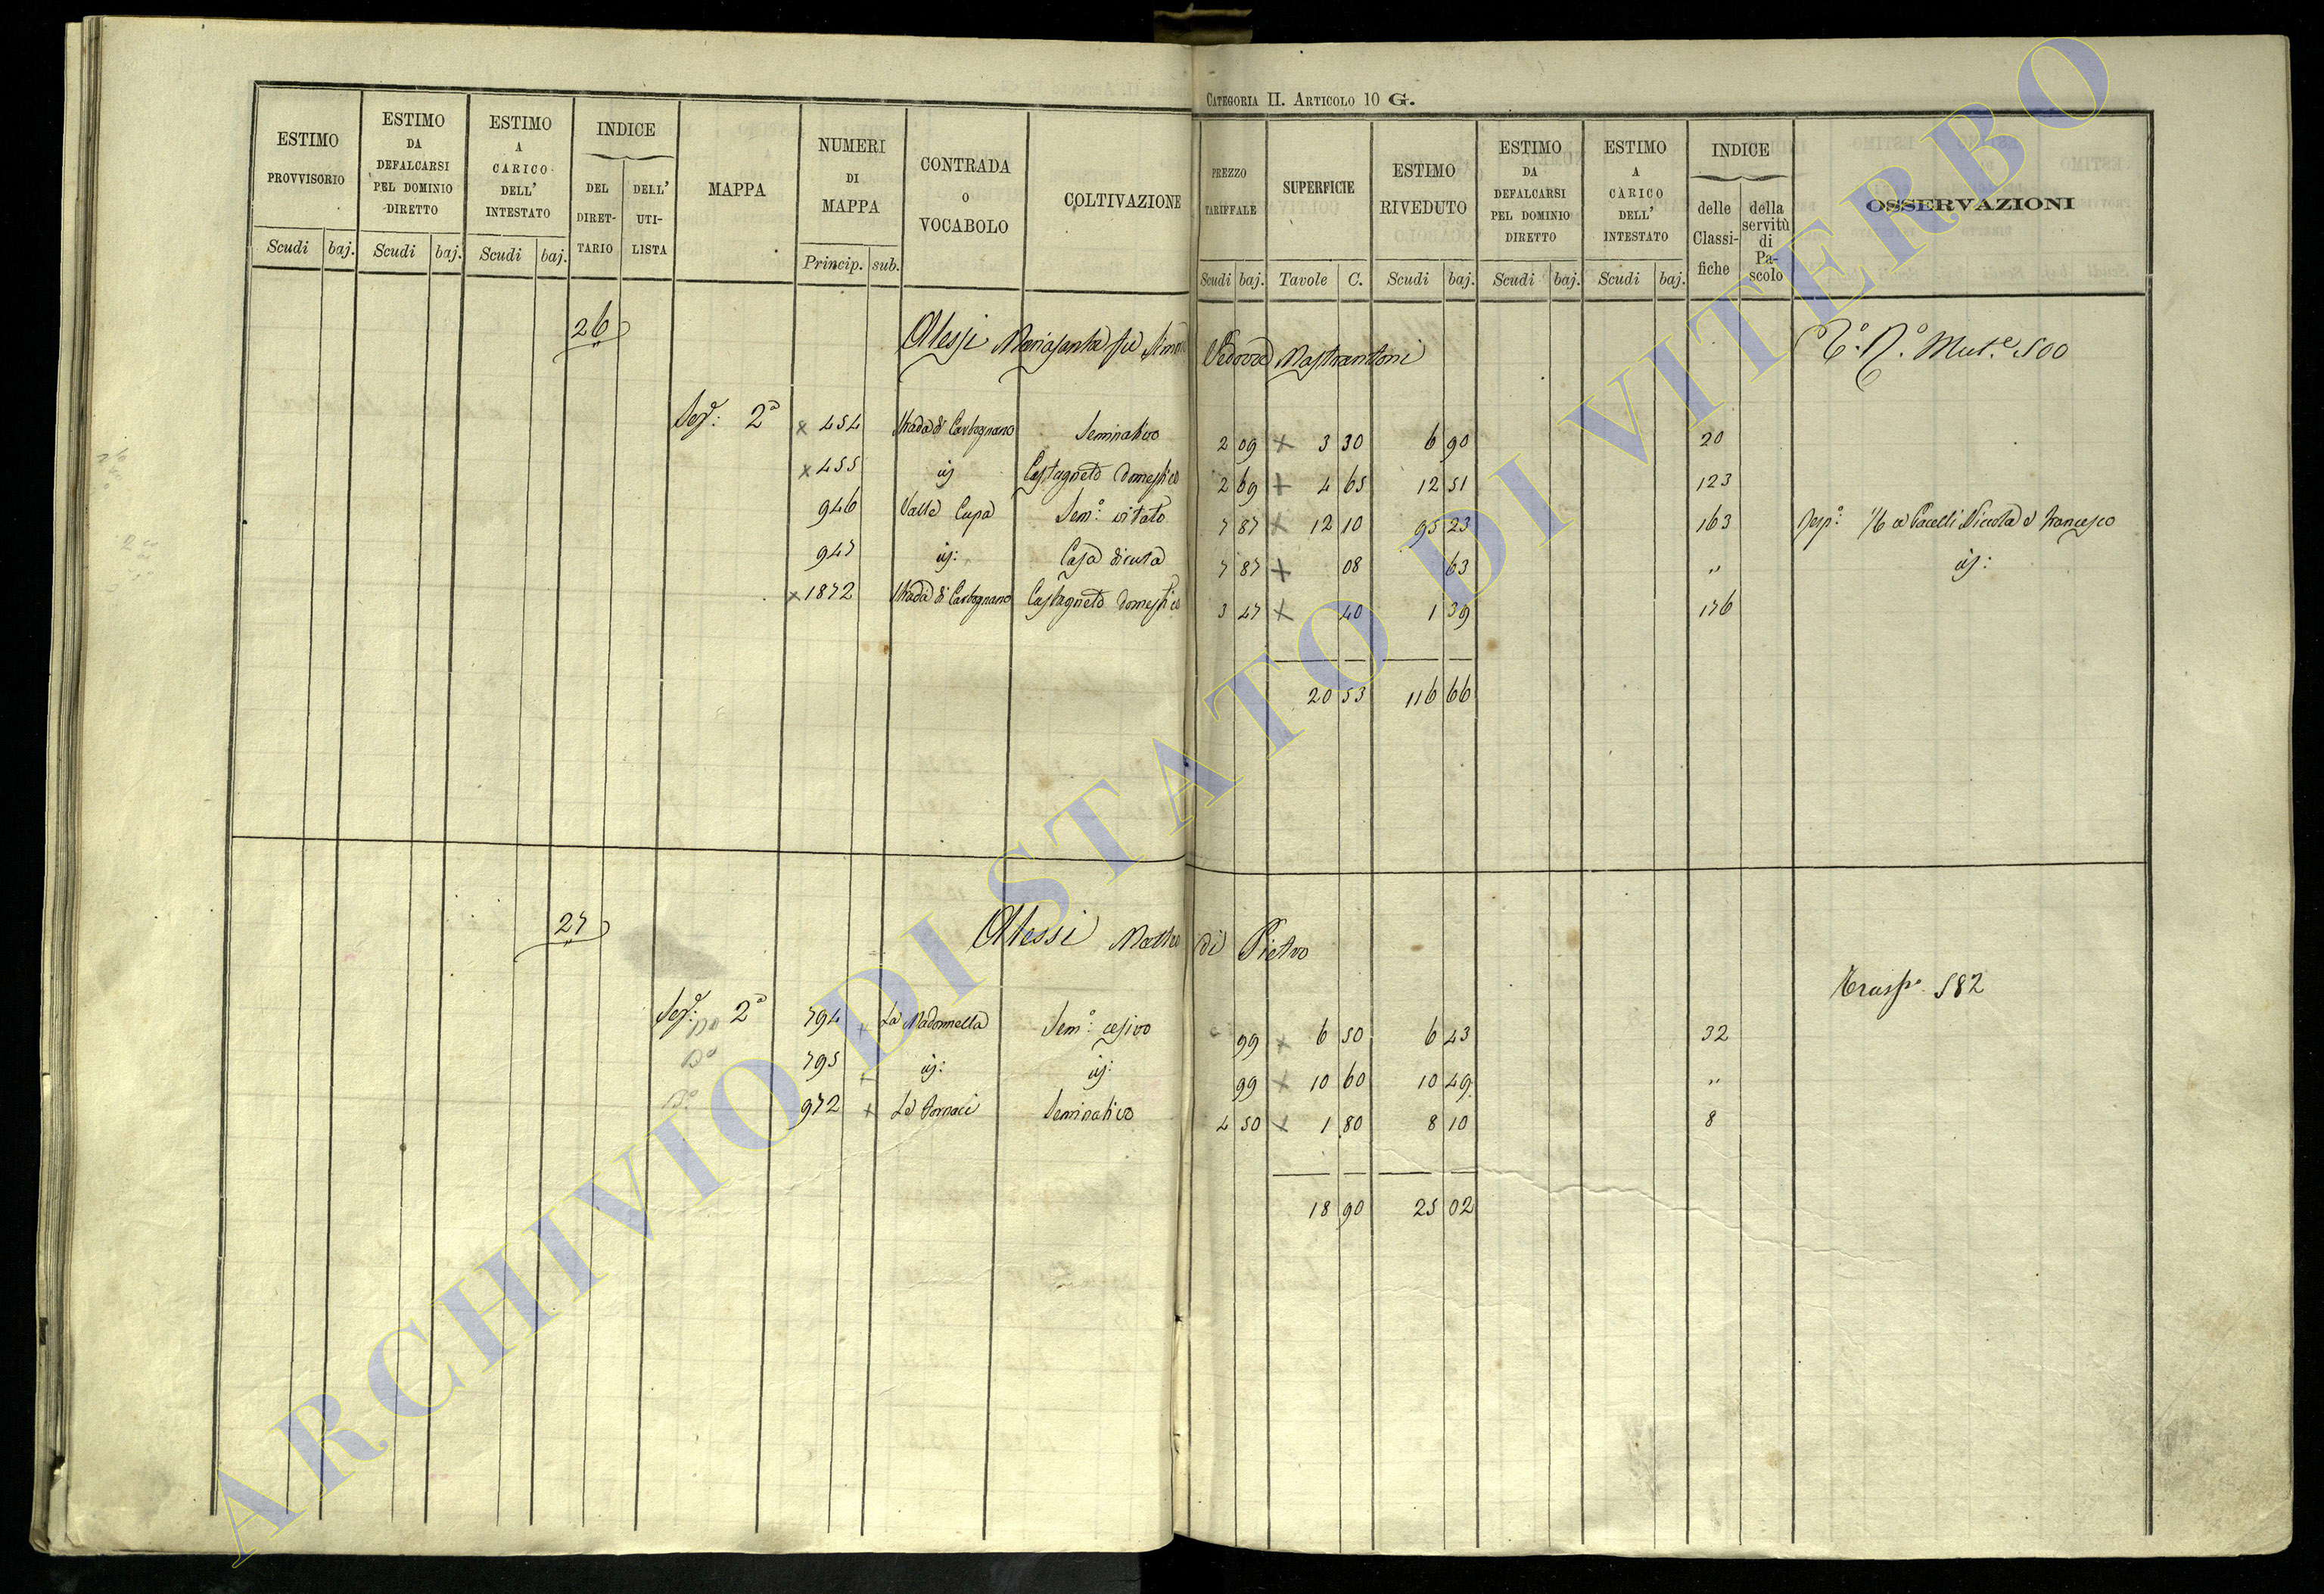 CATEGORIA II. ARTICOLO 10 G.
ESTIMO PROVVISORIO Scudi baj.
ESTIMO DA DEFALCARSI PEL DOMINIO DIRETTO Scudi baj.
ESTIMO A CARICO DELL' INTESTATO Scudi baj.
INDICE DEL DIRETTARIO DELL' UTILISTA
MAPPA
NUMERI DI MAPPA Princip. sub.
CONTRADA O VOCABOLO
COLTIVAZIONE
PREZZO TARIFFALE Scudi baj.
SUPERFICIE Tavole C.
ESTIMO RIVEDUTO Scudi baj.
ESTIMO DA DEFALCARSI PEL DOMINIO DIRETTO Scudi baj.
ESTIMO A CARICO DELL' INTESTATO Scudi baj.
INDICE delle Classifiche della servitù di Pascolo
OSSERVAZIONI
26 Alessi Mariasanta fu Simone Vedova Mastrantoni Mut.e 500
Sez.e: 2a x 454 Strada di Carbognano Seminativo 2 09 x 3 30 6 90 20
x 455 iz Castagneto Domestico 2 69 + 4 65 12 51 123
946 Valle Cupa Sem.o: vitato 7 87 x 12 10 95 23 163 1/6 a Pacelli Niccola e Francesco
947 iz: Casa diruta 7 87 + 08 63 " iz:
x 1872 Strada di Carbognano Castagneto Domestico 3 47 x 40 1 39 176
20 53 116 66
27 Alessi Matteo di Pietro
Trasp.o 582
Sez.e: 2a 794 + La Madonnella Sem.o: cesivo 99 x 6 50 6 43 32
795 + iz: iz: 99 x 10 60 10 49 "
972 + Le Fornaci Seminativo 4 50 x 1 80 8 10 8
18 90 25 02
ARCHIVIO DI STATO DI VITERBO